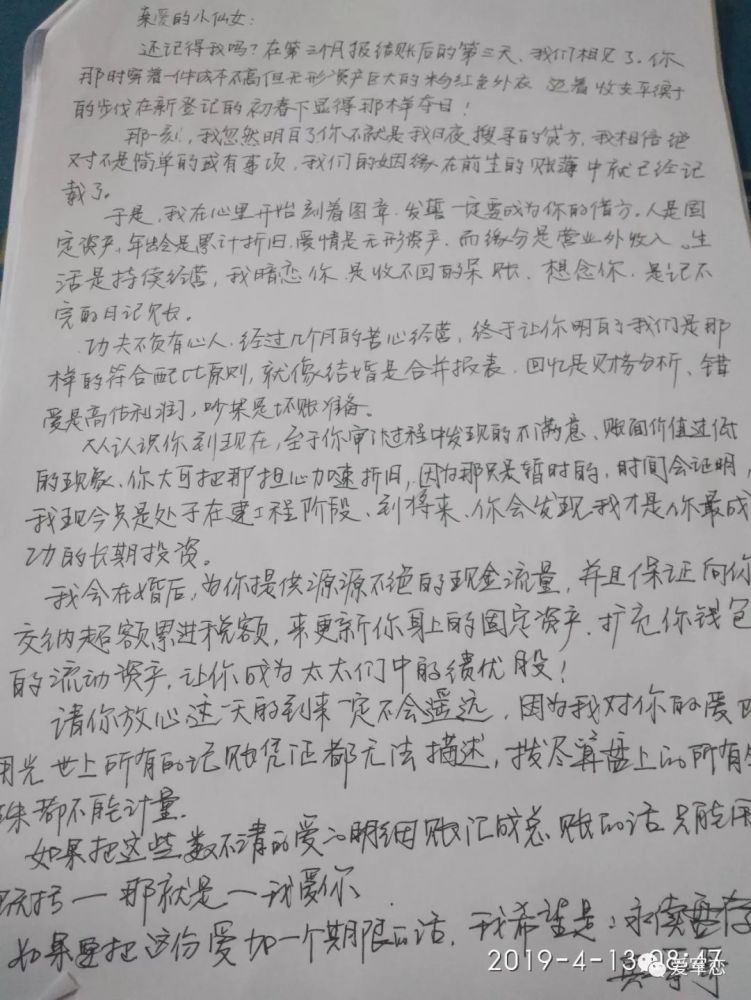 亲爱的小仙女:
还记得我吗?在第三个月报结账后的第三天、我们相见了.你
那时穿着一件成本不高但无形资产巨大的粉红色外衣 迈着收支平衡
的步伐在新登记的初春下显得那样夺目!
那一刻,我忽然明白了你不就是我日夜搜寻的贷方,我相信绝
对不是简单的或有事项,我们的姻缘在前生的账薄中就已经记
载了。
于是,我在心里开始刻着图章.发誓一定要成为你的借方.人是固
定资产,年龄是累计折旧,爱情是无形资产.而缘分是营业外收入。生
活是持续经营,我暗恋你.是收不回的呆账、想念你.是记不
完的日记账。
功夫不负有心人.经过几个月的苦心经营,终于让你明白了我们是那
样的符合配比原则,就像结婚是合并报表.回忆是财务分析、错
爱是高估利润,吵架是坏账准备。
从认识你到现在,至于你审计过程中发现的不满意、账面价值过低
的现象、你大可把那担心加速折旧,因为那只是暂时的,时间会证明,
我现今只是处于在建工程阶段、到将来、你会发现我才是你最成
功的长期投资。
我会在婚后,为你提供源源不绝的现金流量,并且保证向你
交纳超额累进税额,来更新你身上的固定资产.扩充你钱包
的流动资产,让你成为太太们中的绩优股!
请你放心这一天的到来一定不会遥远,因为我对你的爱
用光世上所有的记账凭证都无法描述,拨尽算盘上的所有
珠都不能计量.
如果把这些数不清的爱的明细账汇成总账的话只能用
括号一那就是一我爱你
如果要把这份爱加一个期限的话,我希望是:永续盘存
2019-4-13 08:47
爱军恋